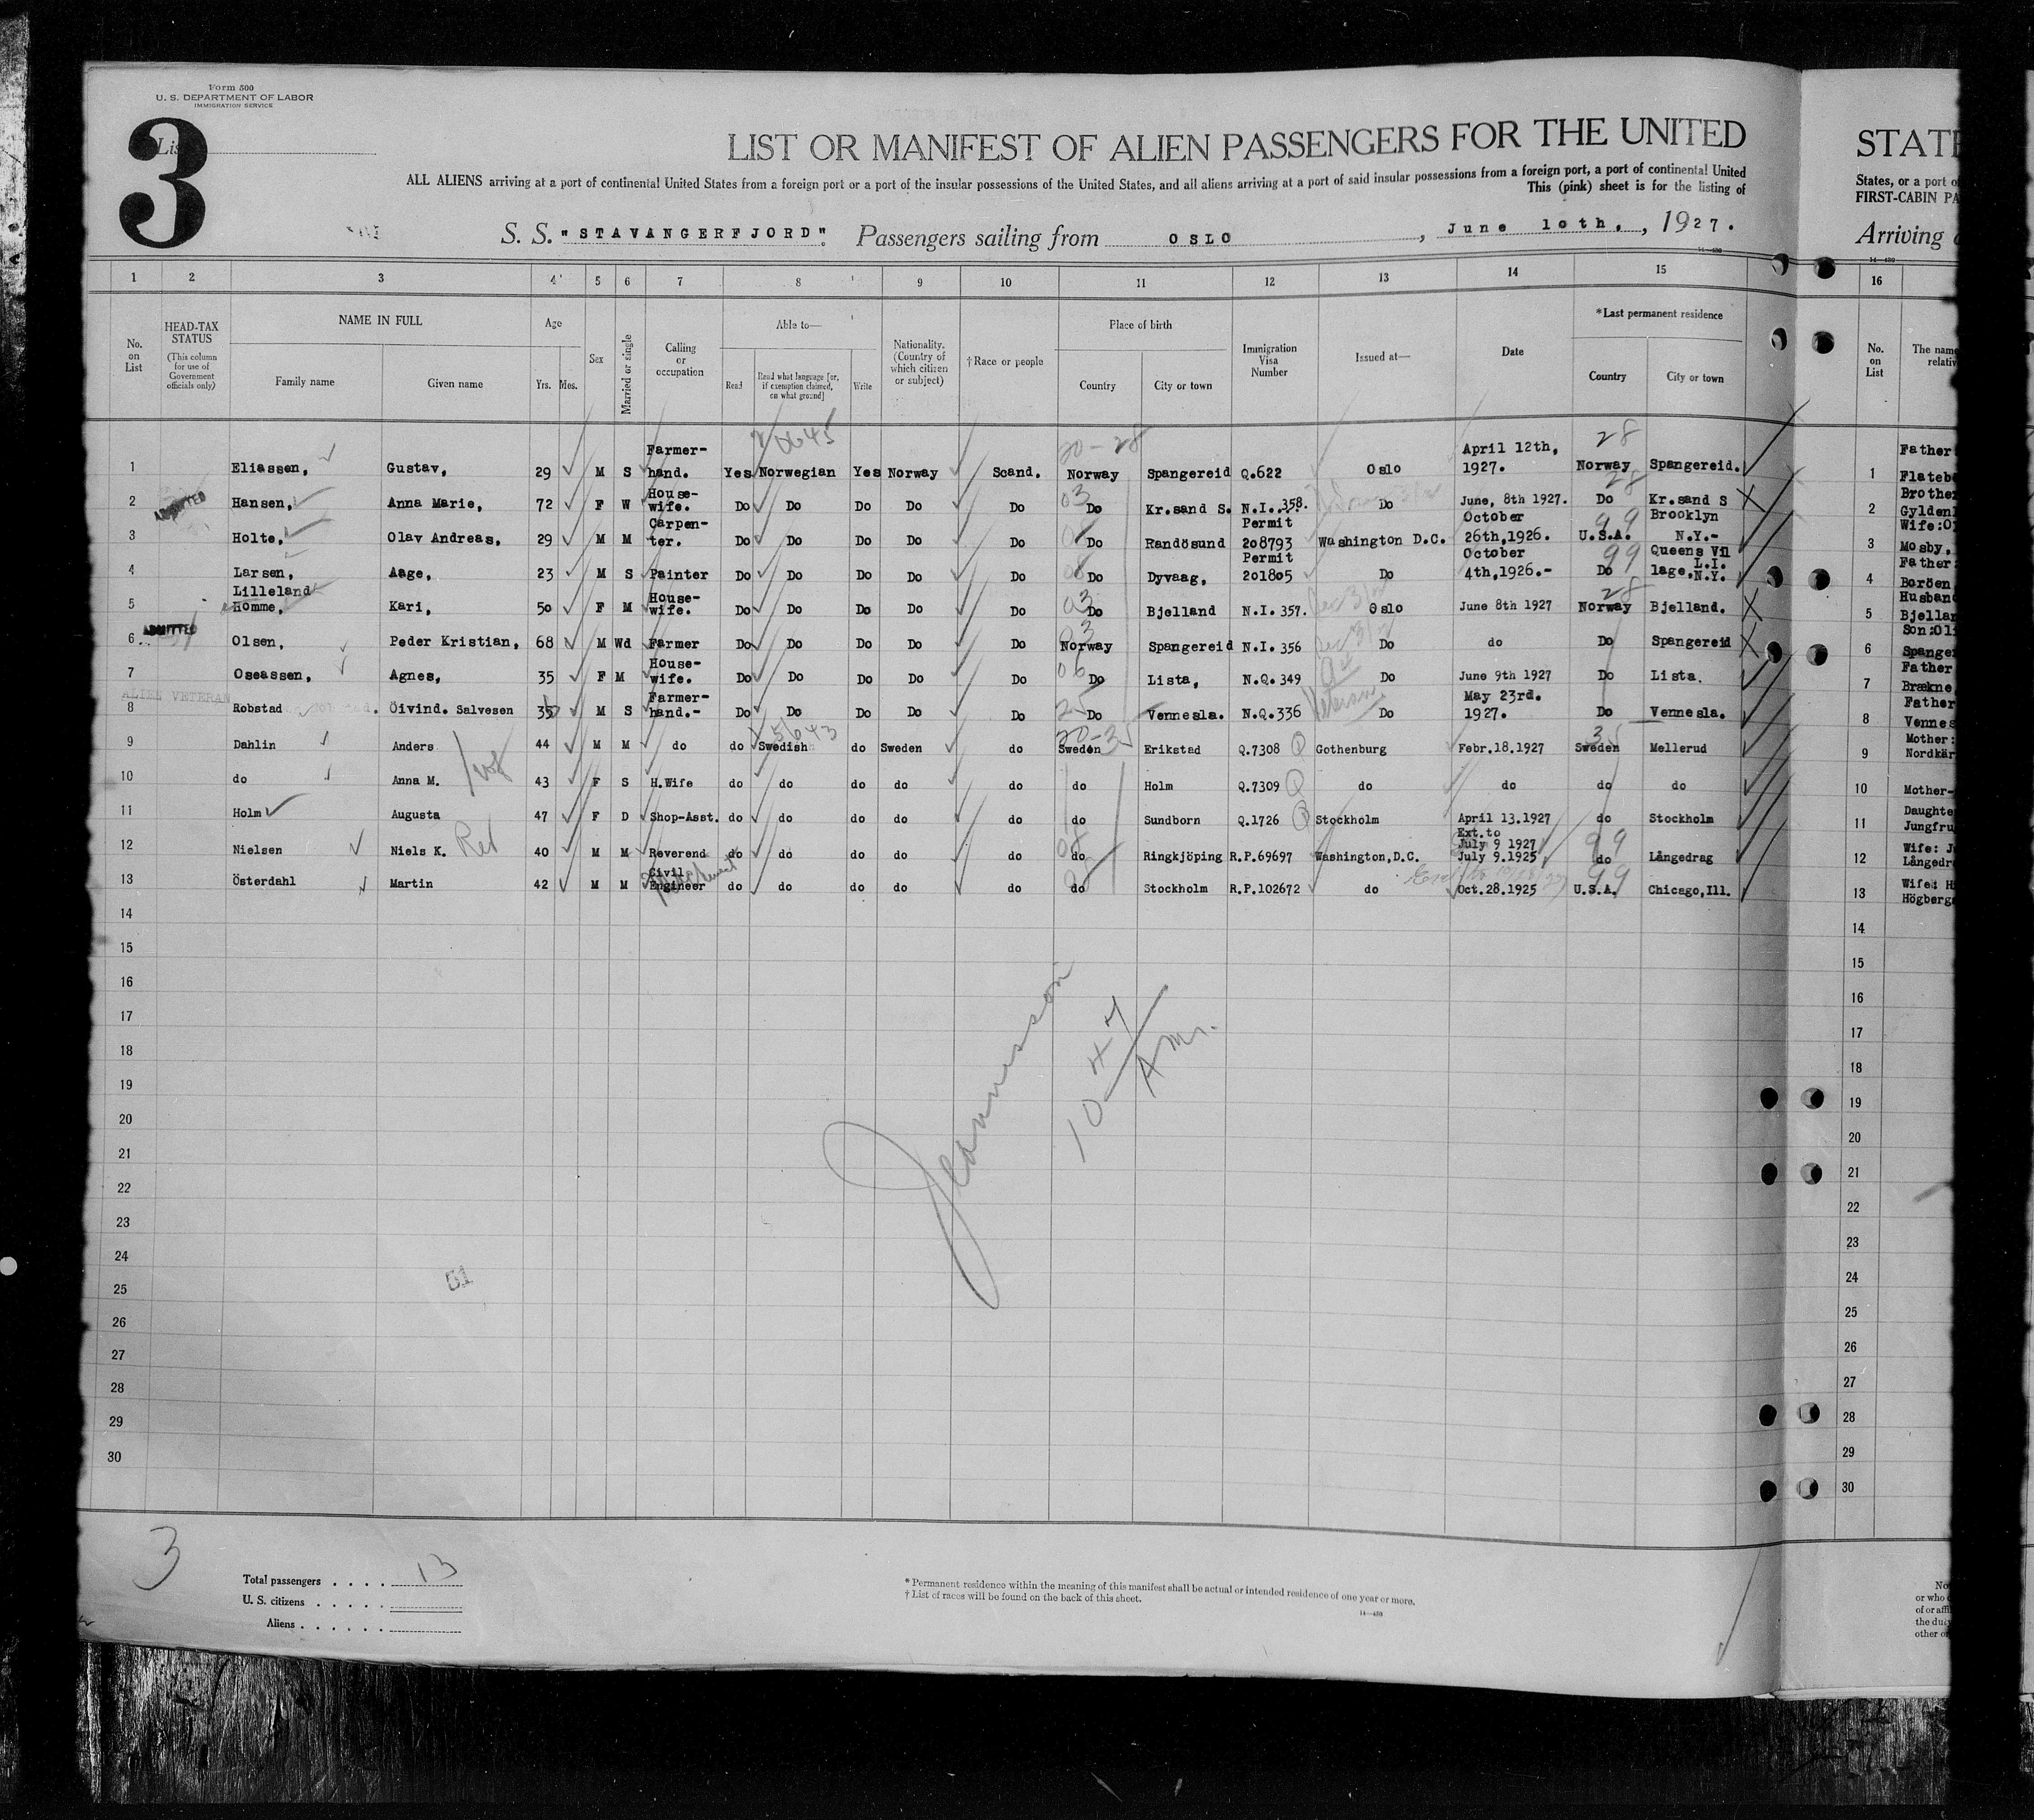 Form 500
U. S. DEPARTMENT OF LABOR
IMMIGRATION SERVICE
3
LIST OR MANIFEST OF ALIEN PASSENGERS FOR THE UNITED
ALL ALIENS arriving at a port of continental United States from a foreign port or a port of the insular possessions of the United States, and all aliens arriving at a port of said insular possessions from a foreign port, a port of continental United
This (pink) sheet is for the listing of
S. S. "STAVANGERFJORD". Passengers sailing from OSLO, June 10th., 1927.
1 2 3 4 5 6 7 8 9 10 11 12 13 14 15
No. on List
HEAD-TAX STATUS
(This column for use of Government officials only)
NAME IN FULL
Family name Given name
Age
Yrs. Mos.
Sex
Married or single
Calling or occupation
Able to—
Read
Read what language [or, if exemption claimed, on what ground]
Write
Nationality. (Country of which citizen or subject)
†Race or people
Place of birth
Country City or town
Immigration Visa Number
Issued at—
Date
*Last permanent residence
Country City or town
1 Eliassen, Gustav, 29 M S Farmer-hand. Yes Norwegian Yes Norway Scand. Norway Spangereid Q.622 Oslo April 12th, 1927. Norway Spangereid.
2 ADMITTED Hansen, Anna Marie, 72 F W House-wife. Do Do Do Do Do Do Kr.sand S. N.I. 358. Do June, 8th 1927. Do Kr.sand S
3 Holte, Olav Andreas, 29 M M Carpen-ter. Do Do Do Do Do Do Randösund Permit 208793 Washington D.C. October 26th,1926. U.S.A. Brooklyn N.Y.-
4 Larsen, Aage, 23 M S Painter Do Do Do Do Do Do Dyvaag, Permit 201805 Do October 4th,1926.- Do Queens Vil lage, L.I. N.Y.
5 Lilleland Homme, Kari, 50 F M House-wife. Do Do Do Do Do Do Bjelland N.I. 357. Oslo June 8th 1927 Norway Bjelland.
6 ADMITTED Olsen, Peder Kristian, 68 M Wd Farmer Do Do Do Do Do Norway Spangereid N.I. 356 Do do Do Spangereid
7 Oseassen, Agnes, 35 F M House-wife. Do Do Do Do Do Do Lista, N.Q. 349 Do June 9th 1927 Do Lista.
ALIEN VETERAN
8 Robstad Öivind. Salvesen 35 M S Farmer-hand.- Do Do Do Do Do Do Vennesla. N.Q. 336 Do May 23rd. 1927. Do Vennesla.
9 Dahlin Anders 44 M M do do Swedish do Sweden do Sweden Erikstad Q.7308 Gothenburg Febr.18.1927 Sweden Mellerud
10 do Anna M. 43 F S H.Wife do do do do do do Holm Q.7309 do do do do
11 Holm Augusta 47 F D Shop-Asst. do do do do do do Sundborn Q.1726 Stockholm April 13.1927 do Stockholm
12 Nielsen Niels K. Ret 40 M M Reverend do do do do do do Ringkjöping R.P.69697 Washington,D.C. Ext.to July 9 1927 July 9.1925 do Långedrag
13 Österdahl Martin 42 M M Civil Engineer do do do do do do Stockholm R.P.102672 do Oct.28.1925 U.S.A. Chicago,Ill.
14
15
16
17
18
19
20
21
22
23
24
25
26
27
28
29
30
51
3
Total passengers . . . . 13
U. S. citizens . . . . .
Aliens . . . . . .
* Permanent residence within the meaning of this manifest shall be actual or intended residence of one year or more.
† List of races will be found on the back of this sheet.
14—430
STATE
States, or a port o
FIRST-CABIN PA
Arriving
16
No. on List
The name
relativ
1 Father
Flateb
2 Brothe
Gylden
3 Wife:O
Mosby,
4 Father
Boröen
5 Husban
Bjellan
6 Son:Ol
Spange
7 Father
Brækne
8 Father
Vennes
9 Mother:
Nordkär
10 Mother-
11 Daughte
Jungfru
12 Wife: J
Långedr
13 Wife: H
Högberg
14
15
16
17
18
19
20
21
22
23
24
25
26
27
28
29
30
No
or who
of or affi
the duty
other of